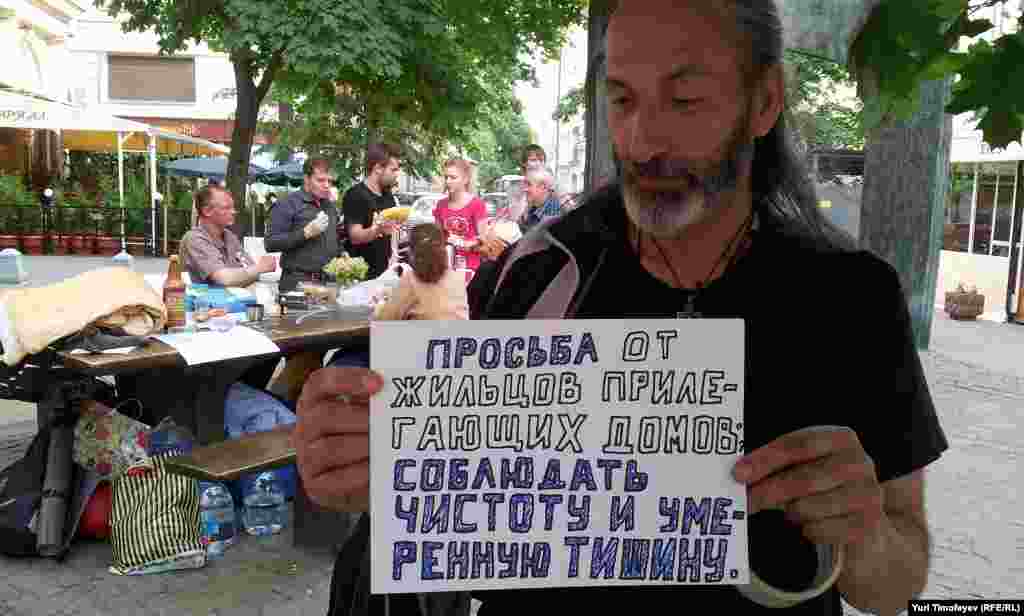 ПРОСЬБА ОТ
ЖИЛЬЦОВ ПРИЛЕ-
ГАЮЩИХ ДОМОВ:
СОБЛЮДАТЬ
ЧИСТОТУ И УМЕ-
РЕННУЮ ТИШИНУ.
Yuri Timofeyev (RFE/RL)